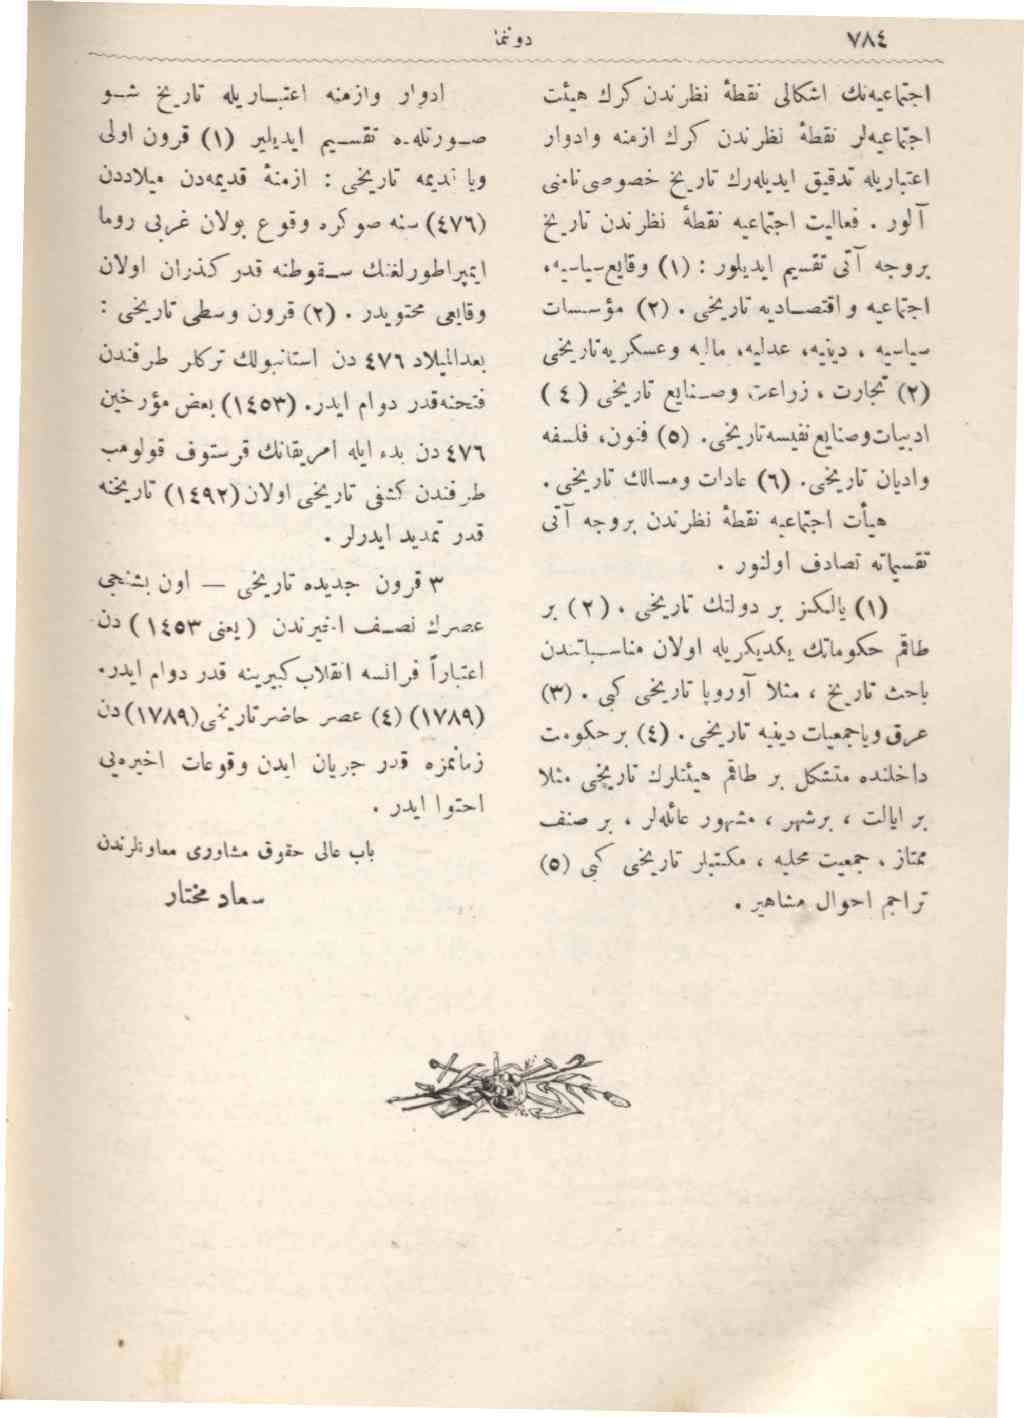 ٧٨٤
دوننما
اجتماعيه‌نك اشكالى نقطۀ نظرندن كرك هيئت
اجتماعيه‌لر نقطۀ نظرندن كرك ازمنه وادوار
اعتباريله تدقيق ايديله‌رك تاريخ خصوصى نامنى
آلور . فعاليت اجتماعيه نقطۀ نظرندن تاريخ
بروجه آتى تقسيم ايديلور : (١) وقايع سياسيه،
اجتماعيه و اقتصاديه تاريخى . (٢) مؤسسات
سياسيه ، دينيه، عدليه، ماليه وعسكريه تاريخى
(٢) تجارت ، زراعت وصنايع تاريخى (٤)
ادبيات وصنايع نفيسه تاريخى. (٥) فنون، فلسفه
واديان تاريخى. (٦) عادات ومسالك تاريخى.
هيأت اجتماعيه نقطۀ نظرندن بروجه آتى
تقسيماته تصادف اولنور .
(١) يالكز بر دولتك تاريخى . (٢) بر
طاقم حكوماتك يكديكريله اولان مناسباتندن
باحث تاريخ ، مثلا آوروپا تاريخى كبى . (٣)
عرق وياجمعيات دينيه تاريخى. (٤) بر حكومت
داخلنده متشكل بر طاقم هيئتلرك تاريخى مثلا
بر ايالت ، برشهر ، مشهور عائله‌لر ، بر صنف
ممتاز ، جمعيت محليه ، مكتبلر تاريخى كبى (٥)
تراجم احوال مشاهير .
ادوار وازمنه اعتباريله تاريخ شو
صورتله‌ه تقسيم ايديلير (١) قرون اولى
ويا قديمه تاريخى : ازمنۀ قديمه‌دن ميلاددن
(٤٧٦) سنه صوكره وقوع بولان غربى روما
ايمپراطورلغنك سقوطنه قدر كذران اولان
وقايعى محتويدر . (٢) قرون وسطى تاريخى :
بعدالميلاد ٤٧٦ دن استانبولك تركلر طرفندن
فتحنه‌قدر دوام ايدر. (١٤٥٣) بعض مؤرخين
٤٧٦ دن بدء ايله امريقانك قرستوف قولومب
طرفندن كشفى تاريخى اولان (١٤٩٢) تاريخنه
قدر تمديد ايدرلر .
٣ قرون جديده تاريخى — اون بشنجى
عصرك نصف اخيرندن (يعنى ١٤٥٣) دن
اعتباراً فرانسه انقلاب كبيرينه قدر دوام ايدر.
(١٧٨٩) (٤) عصر حاضر تاريخى (١٧٨٩) دن
زمانمزه قدر جريان ايدن وقوعات اخيره‌يى
احتوا ايدر .
باب عالى حقوق مشاورى معاونلرندن
سعاد مختار